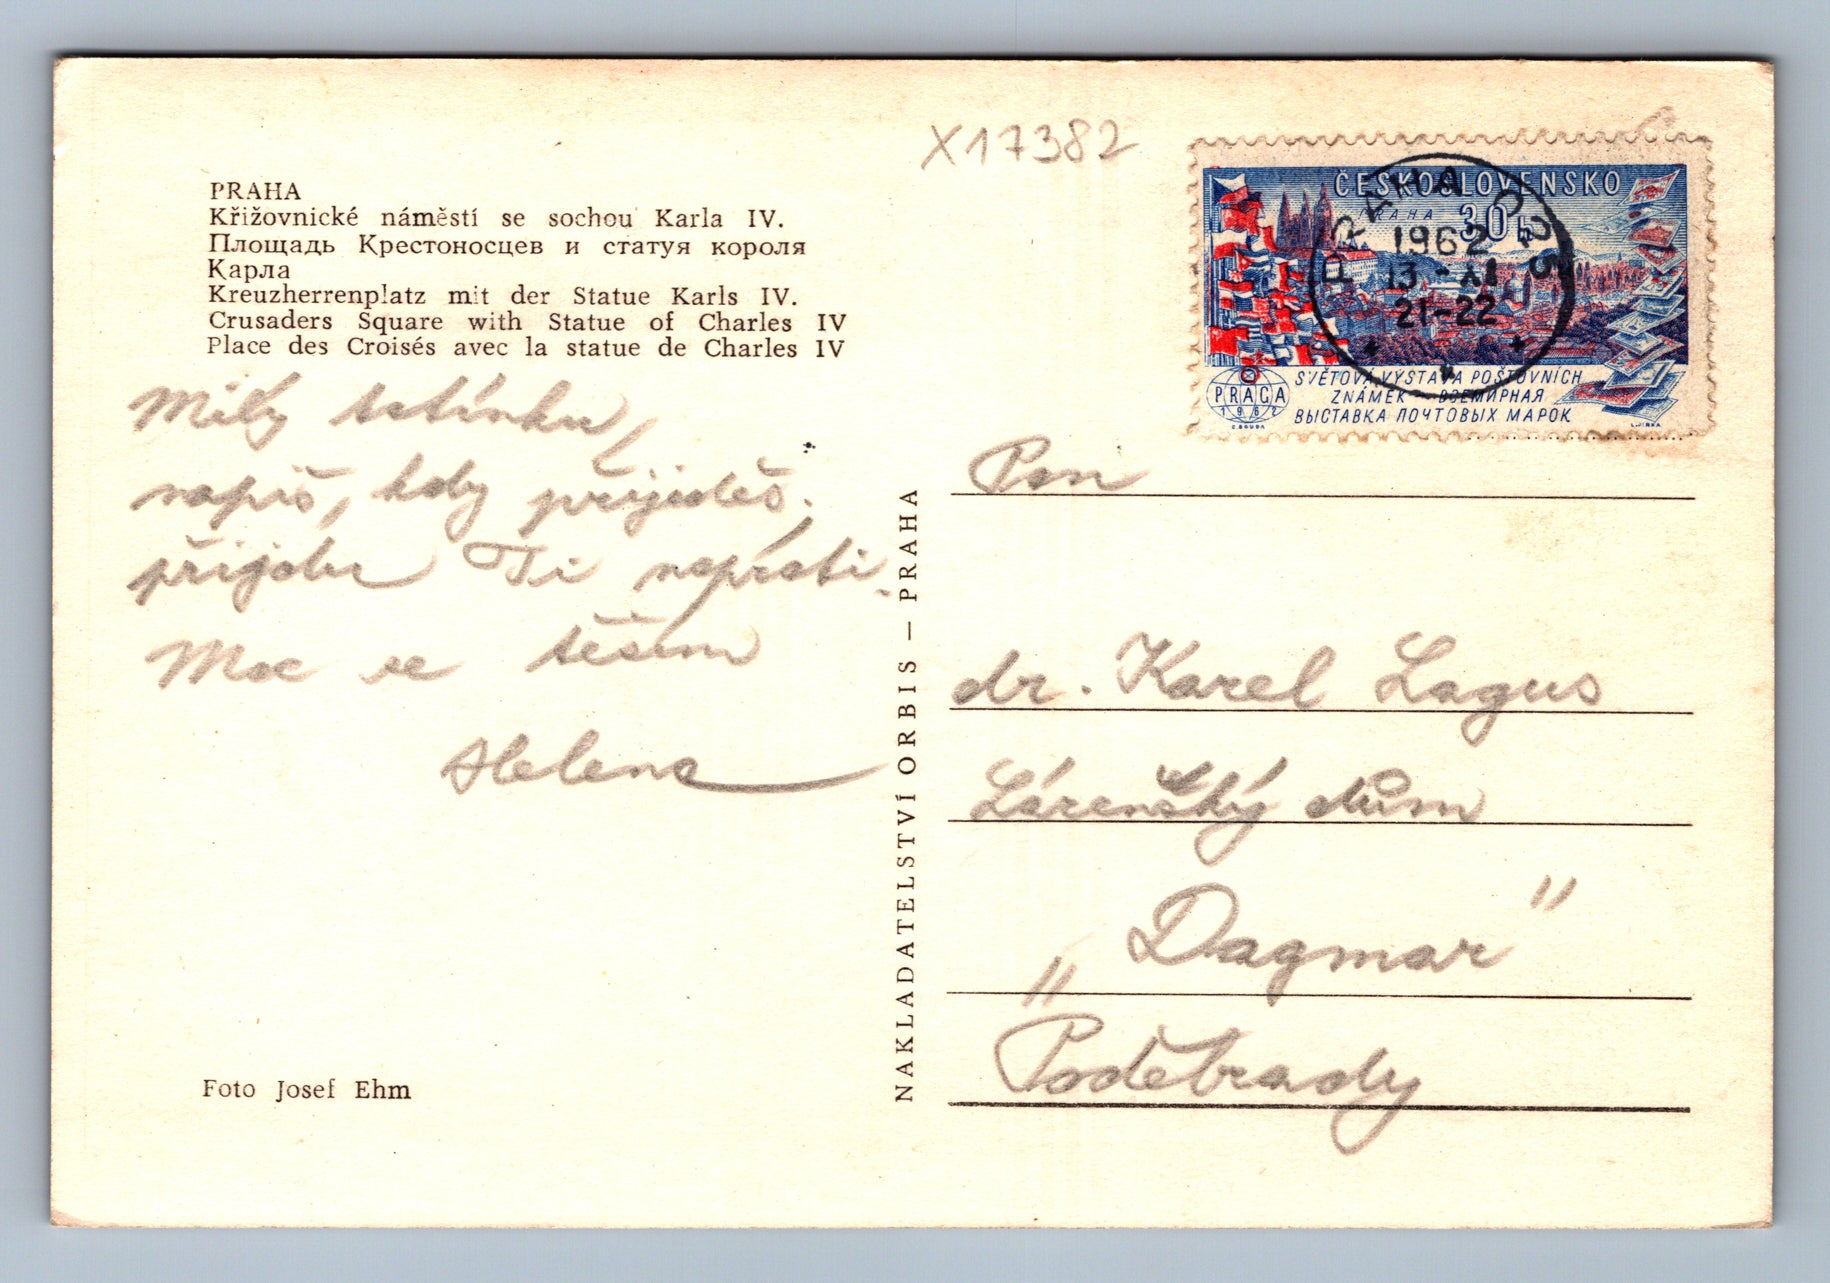 X17382
PRAHA
Křižovnické náměstí se sochou Karla IV.
Площадь Крестоносцев и статуя короля
Карла
Kreuzherrenplatz mit der Statue Karls IV.
Crusaders Square with Statue of Charles IV
Place des Croisés avec la statue de Charles IV
Milý tatínku,
napiš, kdy přijedeš.
přijdu Ti naproti.
Moc se těším
Helena
Foto Josef Ehm
NAKLADATELSTVÍ ORBIS — PRAHA
ČESKOSLOVENSKO
PRAHA 30h
PRAHA 025
1962
13.-XI
21-22
PRAGA
1962
SVĚTOVÁ VÝSTAVA POŠTOVNÍCH
ZNÁMEK — ВСЕМИРНАЯ
ВЫСТАВКА ПОЧТОВЫХ МАРОК
Pan
dr. Karel Lagus
Lázeňský dům
„Dagmar"
Poděbrady